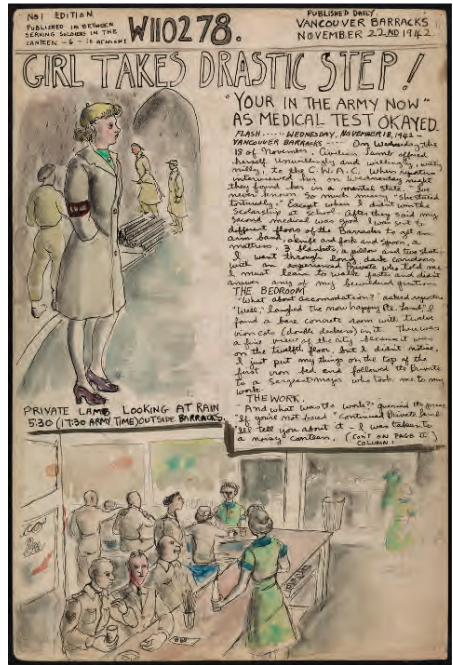 No 1 EDITION
PUBLISHED IN BETWEEN
SERVING SOLDIERS IN THE
CANTEEN - 6 - 10
W110278.
PUBLISHED DAILY.
VANCOUVER BARRACKS
NOVEMBER 22ND 1942
GIRL TAKES DRASTIC STEP!
"YOUR IN THE ARMY NOW"
AS MEDICAL TEST OKAYED.
FLASH.... WEDNESDAY, NOVEMBER, 18, 1942 -
VANCOUVER BARRACKS --- On Wednesday the
18 of November. Civilian Lamb offered
herself. Unwillingly and willingly, willy
nilly, to the C.W.A.C. When reporters
interviewed her on Wednesday night
they found her in a mental state. "I've
never known so much misery," she stated
"Except when I didn't win the
Scholarship at school. After they said my
second medical was good I was sent to
different floors of the Barracks to get an
arm band, a knife and fork and spoon, a
mattress, 3 blankets, a pillow and two sheets.
I went through long, dark corridors
with an experienced Private who told me
I must learn to walk faster and didn't
answer any of my bewildered questions.
THE BEDROOM
"What about accomodation?" asked reporters
"Well," laughed the now happy Pte. Lamb, "I
found a bare concrete room with twelve
iron cots (double deckers) in it. There was
a fine view of the city because it was
on the twelfth floor, but I didn't notice.
I just put my things on the top of the
first iron bed and followed the Private
to a Sergeant major who took me to my
work.
THE WORK.
And what was the work? queried the press
"If you're not bored" continued Private Lamb
"I'll tell you about it - I was taken to
a noisy canteen. (CON'T ON PAGE II)
COLUMN I
PRIVATE LAMB LOOKING AT RAIN
5:30 (17:30 ARMY TIME) OUTSIDE BARRACKS.